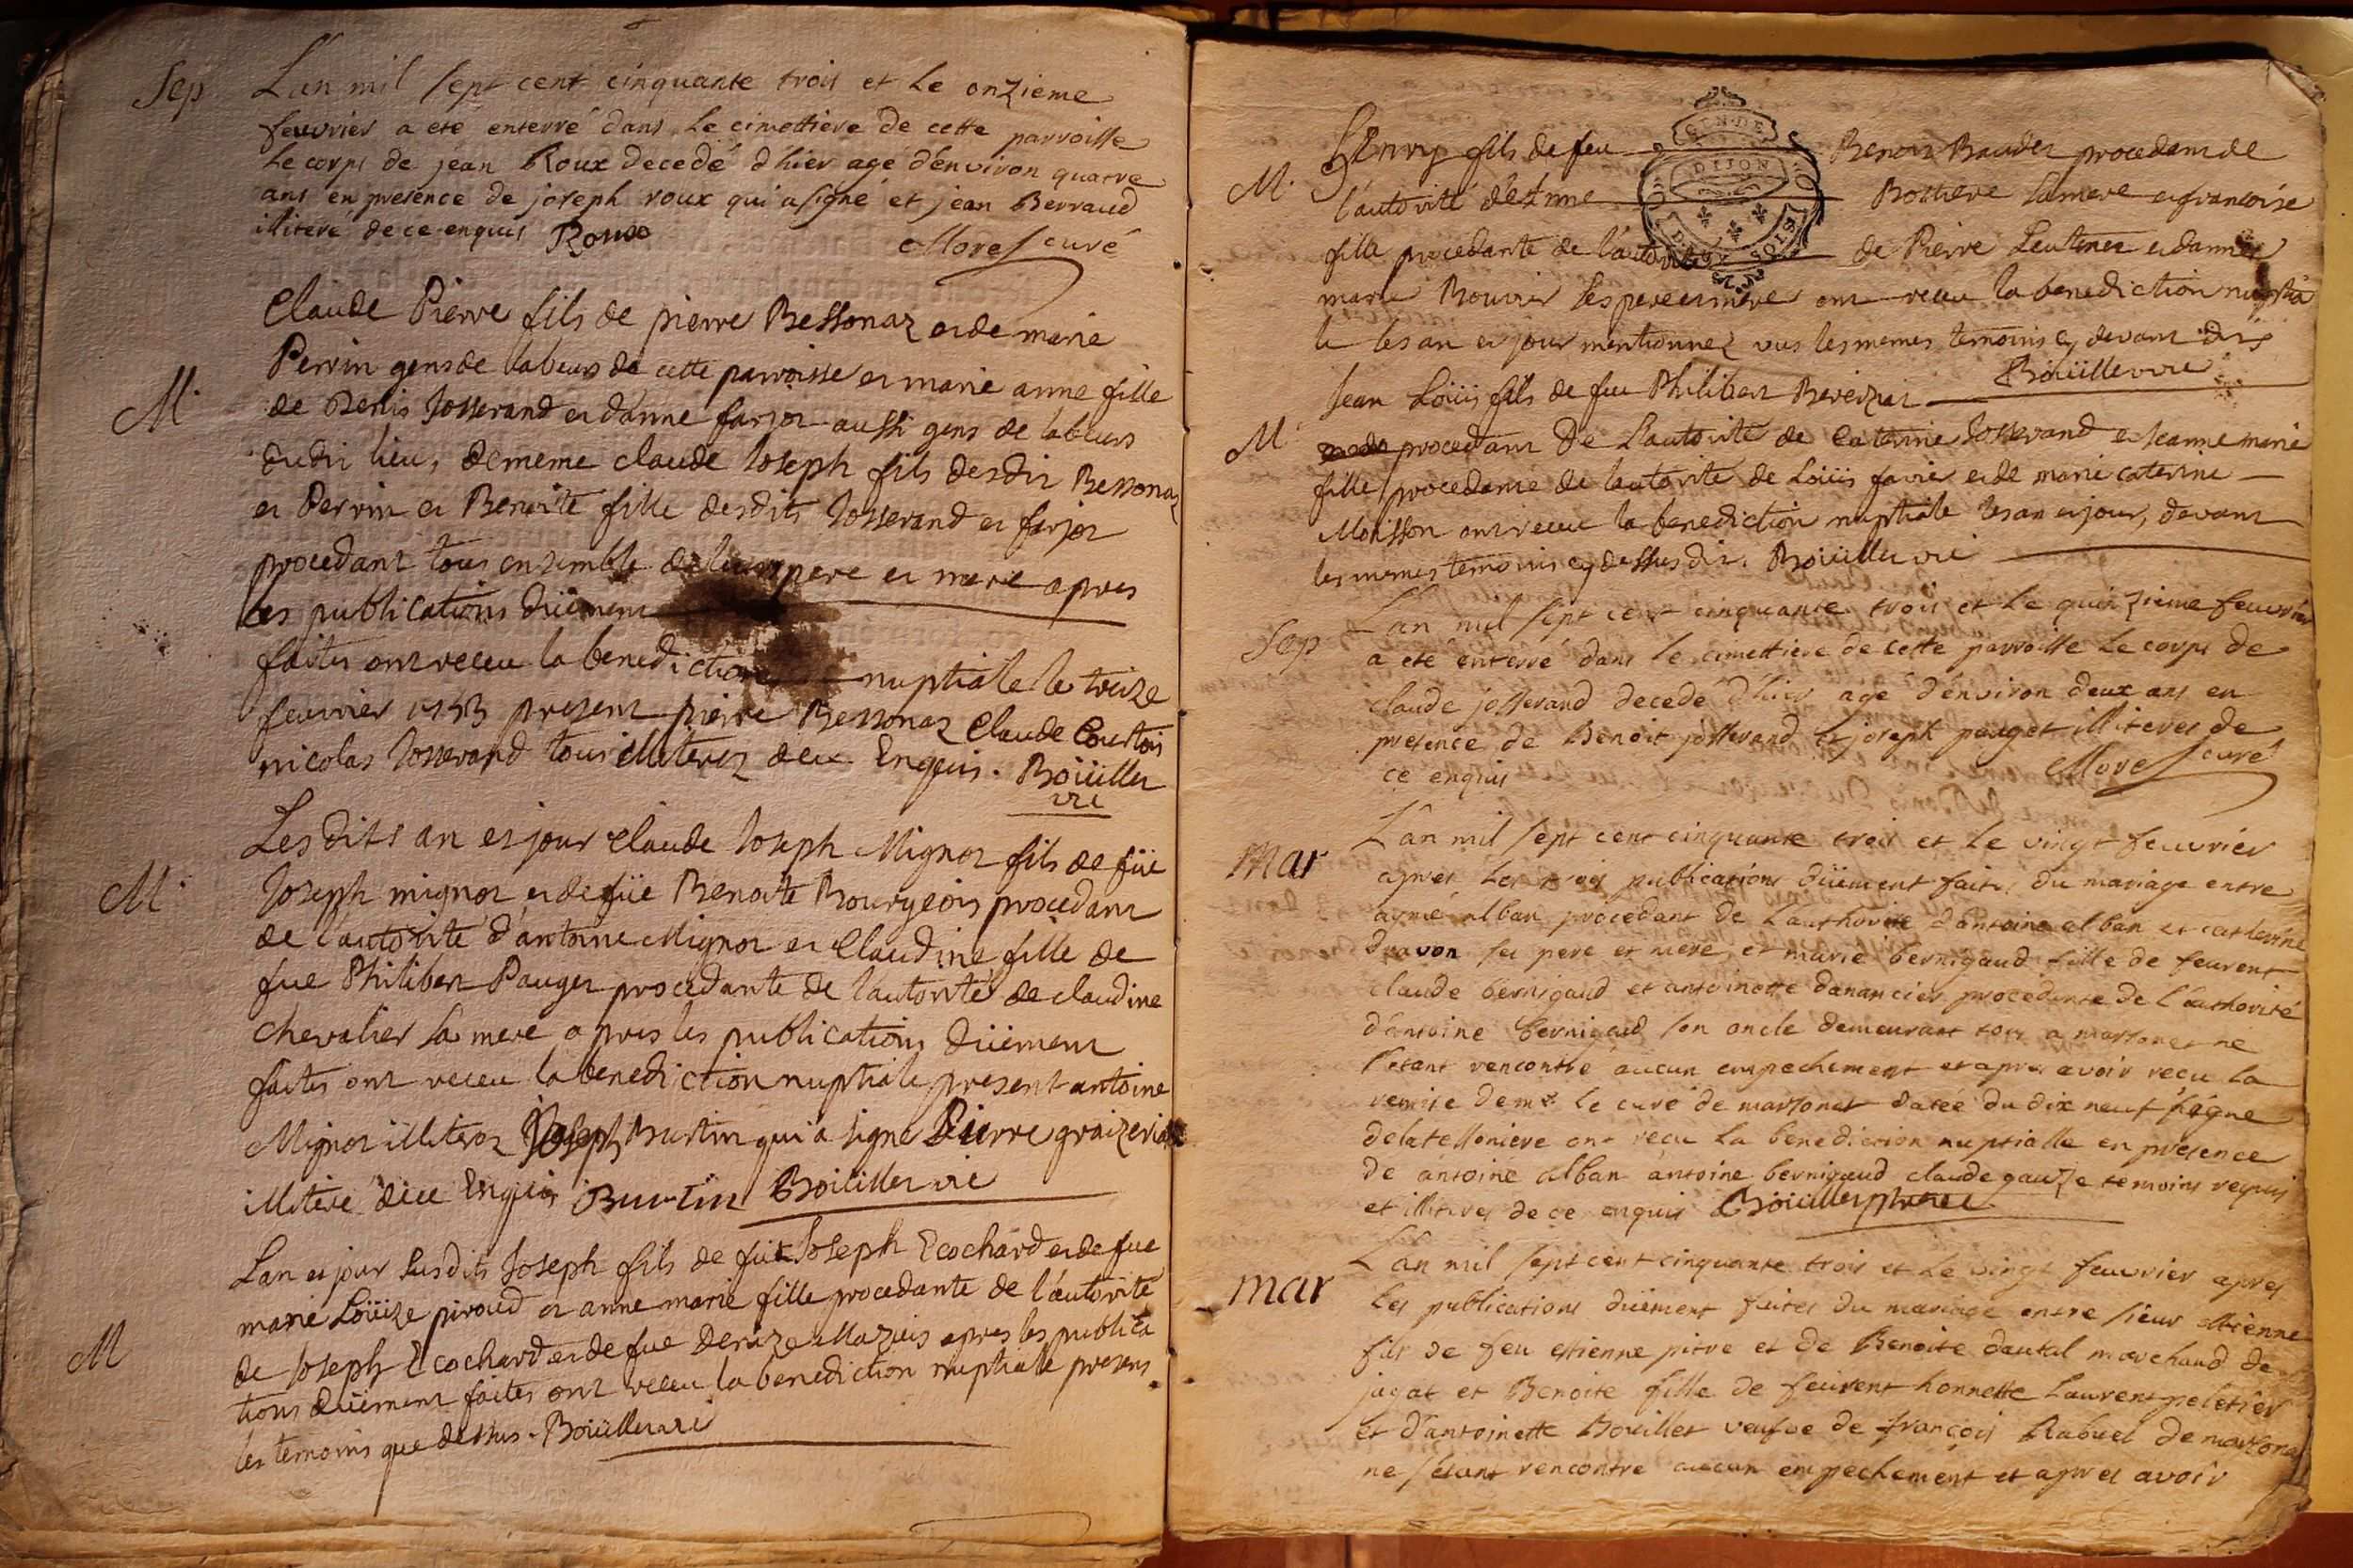 Sep
L'an mil sept cent cinquante trois et le onzieme
feuvrier a eté enterré dans le cimettiere de cette parroisse
le corps de jean Roux decedé d'hier agé d'environ quatre
ans en presence de joseph roux qui a signé et jean Berraud
illiteré de ce enquis Roux Morel curé
M.
Claude Pierre fils de pierre Bessonat et de marie
Perrin gens de labeurs de cette parroisse et marie anne fille
de Denis Josserand et d'anne farjot aussi gens de labeurs
dudit lieu, de meme claude Joseph fils desdit Bessonat
et Perrin et Benoite fille desdits Josserand et farjot
procedant tous ensemble de leurs pere et mere apres
les publications düement
faites ont receu la benediction nuptiale le treize
feuvrier 1753 present pierre Bessonat Claude Courtois
nicolas Josserand tous illiterez de ce Enquis. Boüiller
vic
M.
Les dits an et jour Claude Joseph Mignot fils de füe
Joseph mignot et de füe Benoite Bourgeois procedant
de l'autorité d'antoine Mignot et Claudine fille de
fue Philibert Pauget procedante de l'autorité de claudine
chevalier sa mere apres les publications düement
faites ont receu la benediction nuptiale present antoine
Mignot illiteré Joseph Burtin qui a signé Pierre
illiteré de ce Enquis Burtin Boüiller vic
M
L'an et jour susdits Joseph fils de füe Joseph Ecochard et de fue
marie Loüize piroud et anne marie fille procedante de l'autorité
de Joseph Ecochard et de fue Denize Mazuis apres les publica
tions düement faites ont receu la benediction nuptiale presens
les temoins que dessus. Boüiller vic
GEN. DE
DIJON
M.
Henry fils de feu Benoit Baudet procedant de
l'autorité d'Anne sa mere et francoise
fille procedante de l'autorité de Pierre et d'anne
marie Bouvier ses pere et mere ont receu la benediction nuptia
le les an et jour mentionnez vus les memes temoins cy devant dits
Boüiller vic
M
Jean Loüis fils de feu Philibert
procedant de L'autorité de Caterine Josserand et Jeanne marie
fille procedante de l'autorité de Loüis favre et de marie caterine
Moisson ont receu la benediction nuptiale les an et jour, devant
les memes temoins cy dessus dit. Boüiller vic
Sep
L'an mil sept cent cinquante trois et le quinzieme feuvrier
a eté enterré dans le cimettiere de cette parroisse le corps de
claude josserand decedé d'hier agé d'environ deux ans en
presence de Benoit josserand et joseph pauget illiteres de
ce enquis Morel curé
mar
L'an mil sept cent cinquante trois et le vingt feuvrier
apres les trois publications düement faites du mariage entre
aymé alban procedant de l'authorité d'antoine alban et catherine
dravon ses pere et mere, et marie bernigaud fille de feurent
claude bernigaud et antoinette danancier procedante de l'authorité
d'antoine bernigaud son oncle demeurant tous a marsonat ne
s'etant rencontré aucun empechement et apres avoir reçu la
remise de mr le curé de marsonat datée du dix neuf signé
delatelloniere ont reçu la benediction nuptialle en presence
de antoine alban antoine bernigaud claude gauze temoins requis
et illiteres de ce enquis Boüiller
mar
L'an mil sept cent cinquante trois et le vingt feuvrier apres
les publications düement faites du mariage entre sieur estienne
fils de feu estienne pitre et de Benoite dautal marchand de
jayat et Benoite fille de feurent honnette Laurent peletier
et d'antoinette Boüillet veufve de françois Rabuel de marsonat
ne s'etant rencontré aucun empechement et apres avoir